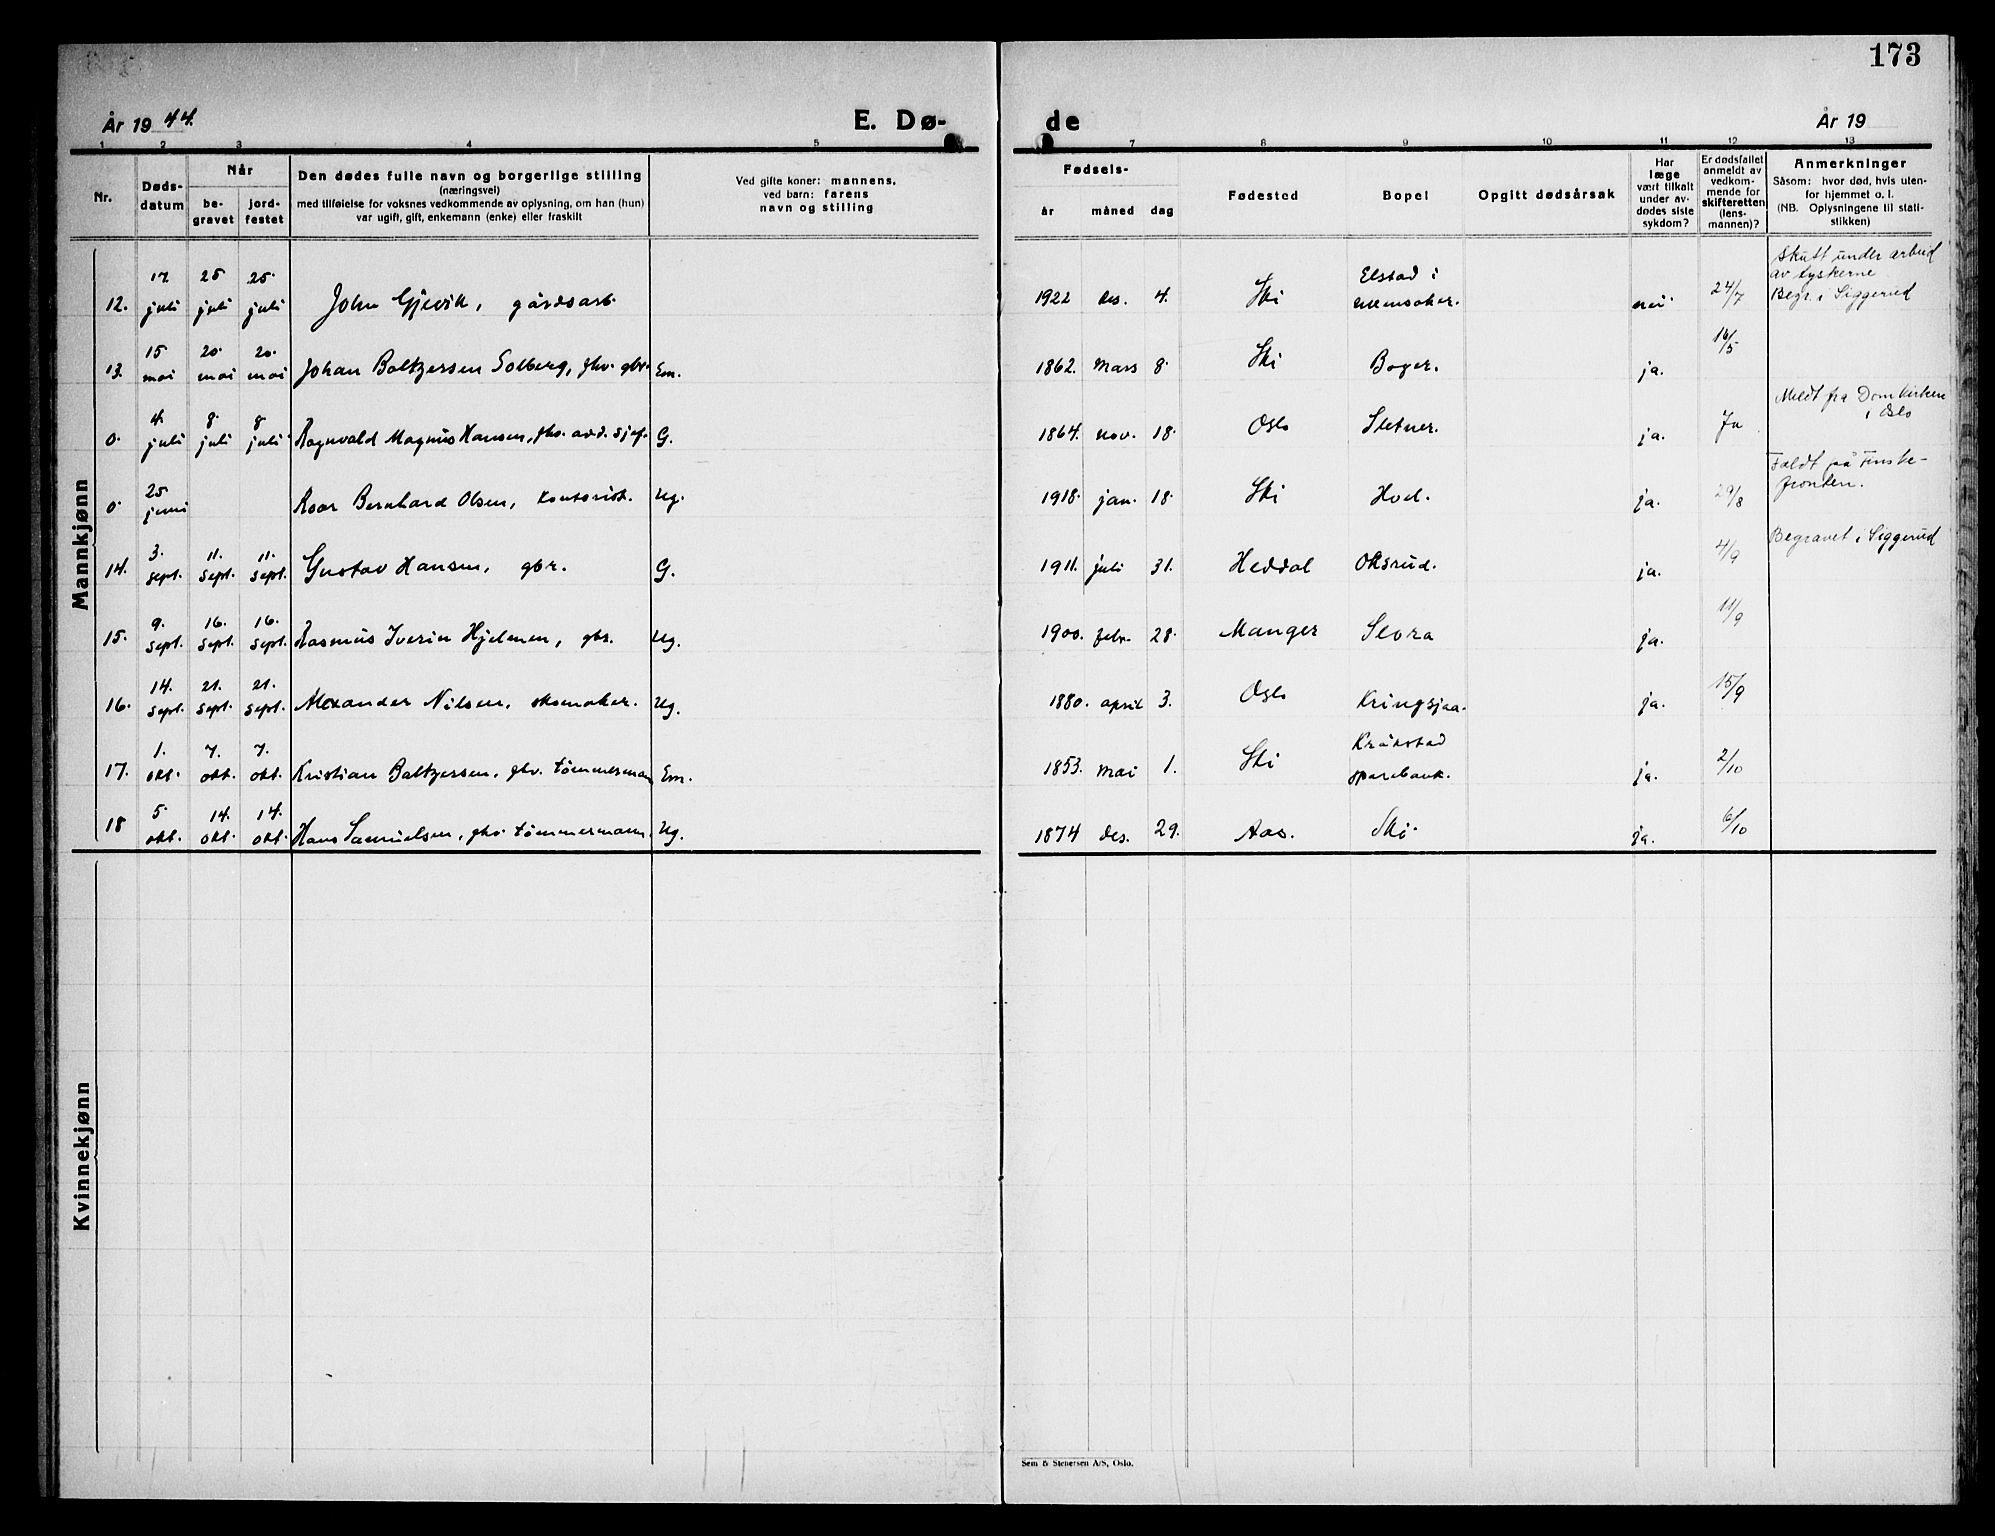 173
År 1944.
E. Dø-
de
År 19
1 2 3 4 5
7 8 9 10 11 12 13
Nr.
Døds-
datum
Når
be-
gravet
jord-
festet
Den dødes fulle navn og borgerlige stilling
(næringsvei)
med tilføielse for voksnes vedkommende av oplysning, om han (hun)
var ugift, gift, enkemann (enke) eller fraskilt
Ved gifte koner: mannens,
ved barn: farens
navn og stilling
Fødsels-
år måned dag
Fødested
Bopel
Opgitt dødsårsak
Har
læge
vært tilkalt
under av-
dødes siste
sykdom?
Er dødsfallet
anmeldt av
vedkom-
mende for
skifteretten
(lens-
mannen)?
Anmerkninger
Såsom: hvor død, hvis uten-
for hjemmet o. l.
(NB. Oplysningene til stati-
stikken)
Mannkjønn
12. 17. juli 25 juli 25. juli John Gjevik, gårdsarb. 1922 des. 4. Ski Elstad i nei 24/7 Skutt under arbeid
av tyskerne
Begr. i Siggerud
13. 15 mai 20. mai 20. mai Johan Baltzersen Solberg, fhv. gbr. Em. 1862. Mars 8. Ski Boger. ja. 16/5
0. 4. juli 8. juli 8 juli Ragnvald Magnus Hansen, fhv. avd. sjef. G. 1864. nov. 18. Oslo Sletner. ja. Ja Meldt fra Domkirken
i Oslo
0. 25 juni Roar Bernhard Olsen, kontorist. Ug. 1918. jan. 18. Ski Hvel. ja. 29/8 Faldt på Finske-
fronten.
14. 3. sept. 11. sept. 11. sept. Gustav Hansen, gbr. G. 1911. juli 31. Heddal Oksrud. ja. 4/9 Begravet i Siggerud
15. 9. sept. 16. sept. 16. sept. Rasmus Iverin Hjelmen, gbr. Ug. 1900. febr. 28. Manger Slora ja. 11/9
16. 14. sept. 21. sept. 21. sept. Alexander Nilsen, skomaker. Ug. 1880. april 3. Oslo Kringsjaa. ja. 15/9
17. 1. okt. 7. okt. 7. okt. Kristian Baltzersen, fhv. tømmermann Em. 1853. mai 1. Ski Kråkstad
sparebank. ja. 2/10
18 5 okt. 14. okt. 14. okt Hans Samuelsen, fhv tømmermann. Ug. 1874 des. 29. Aas. Ski. ja. 6/10
Kvinnekjønn
Sem & Stenersen A/S, Oslo.